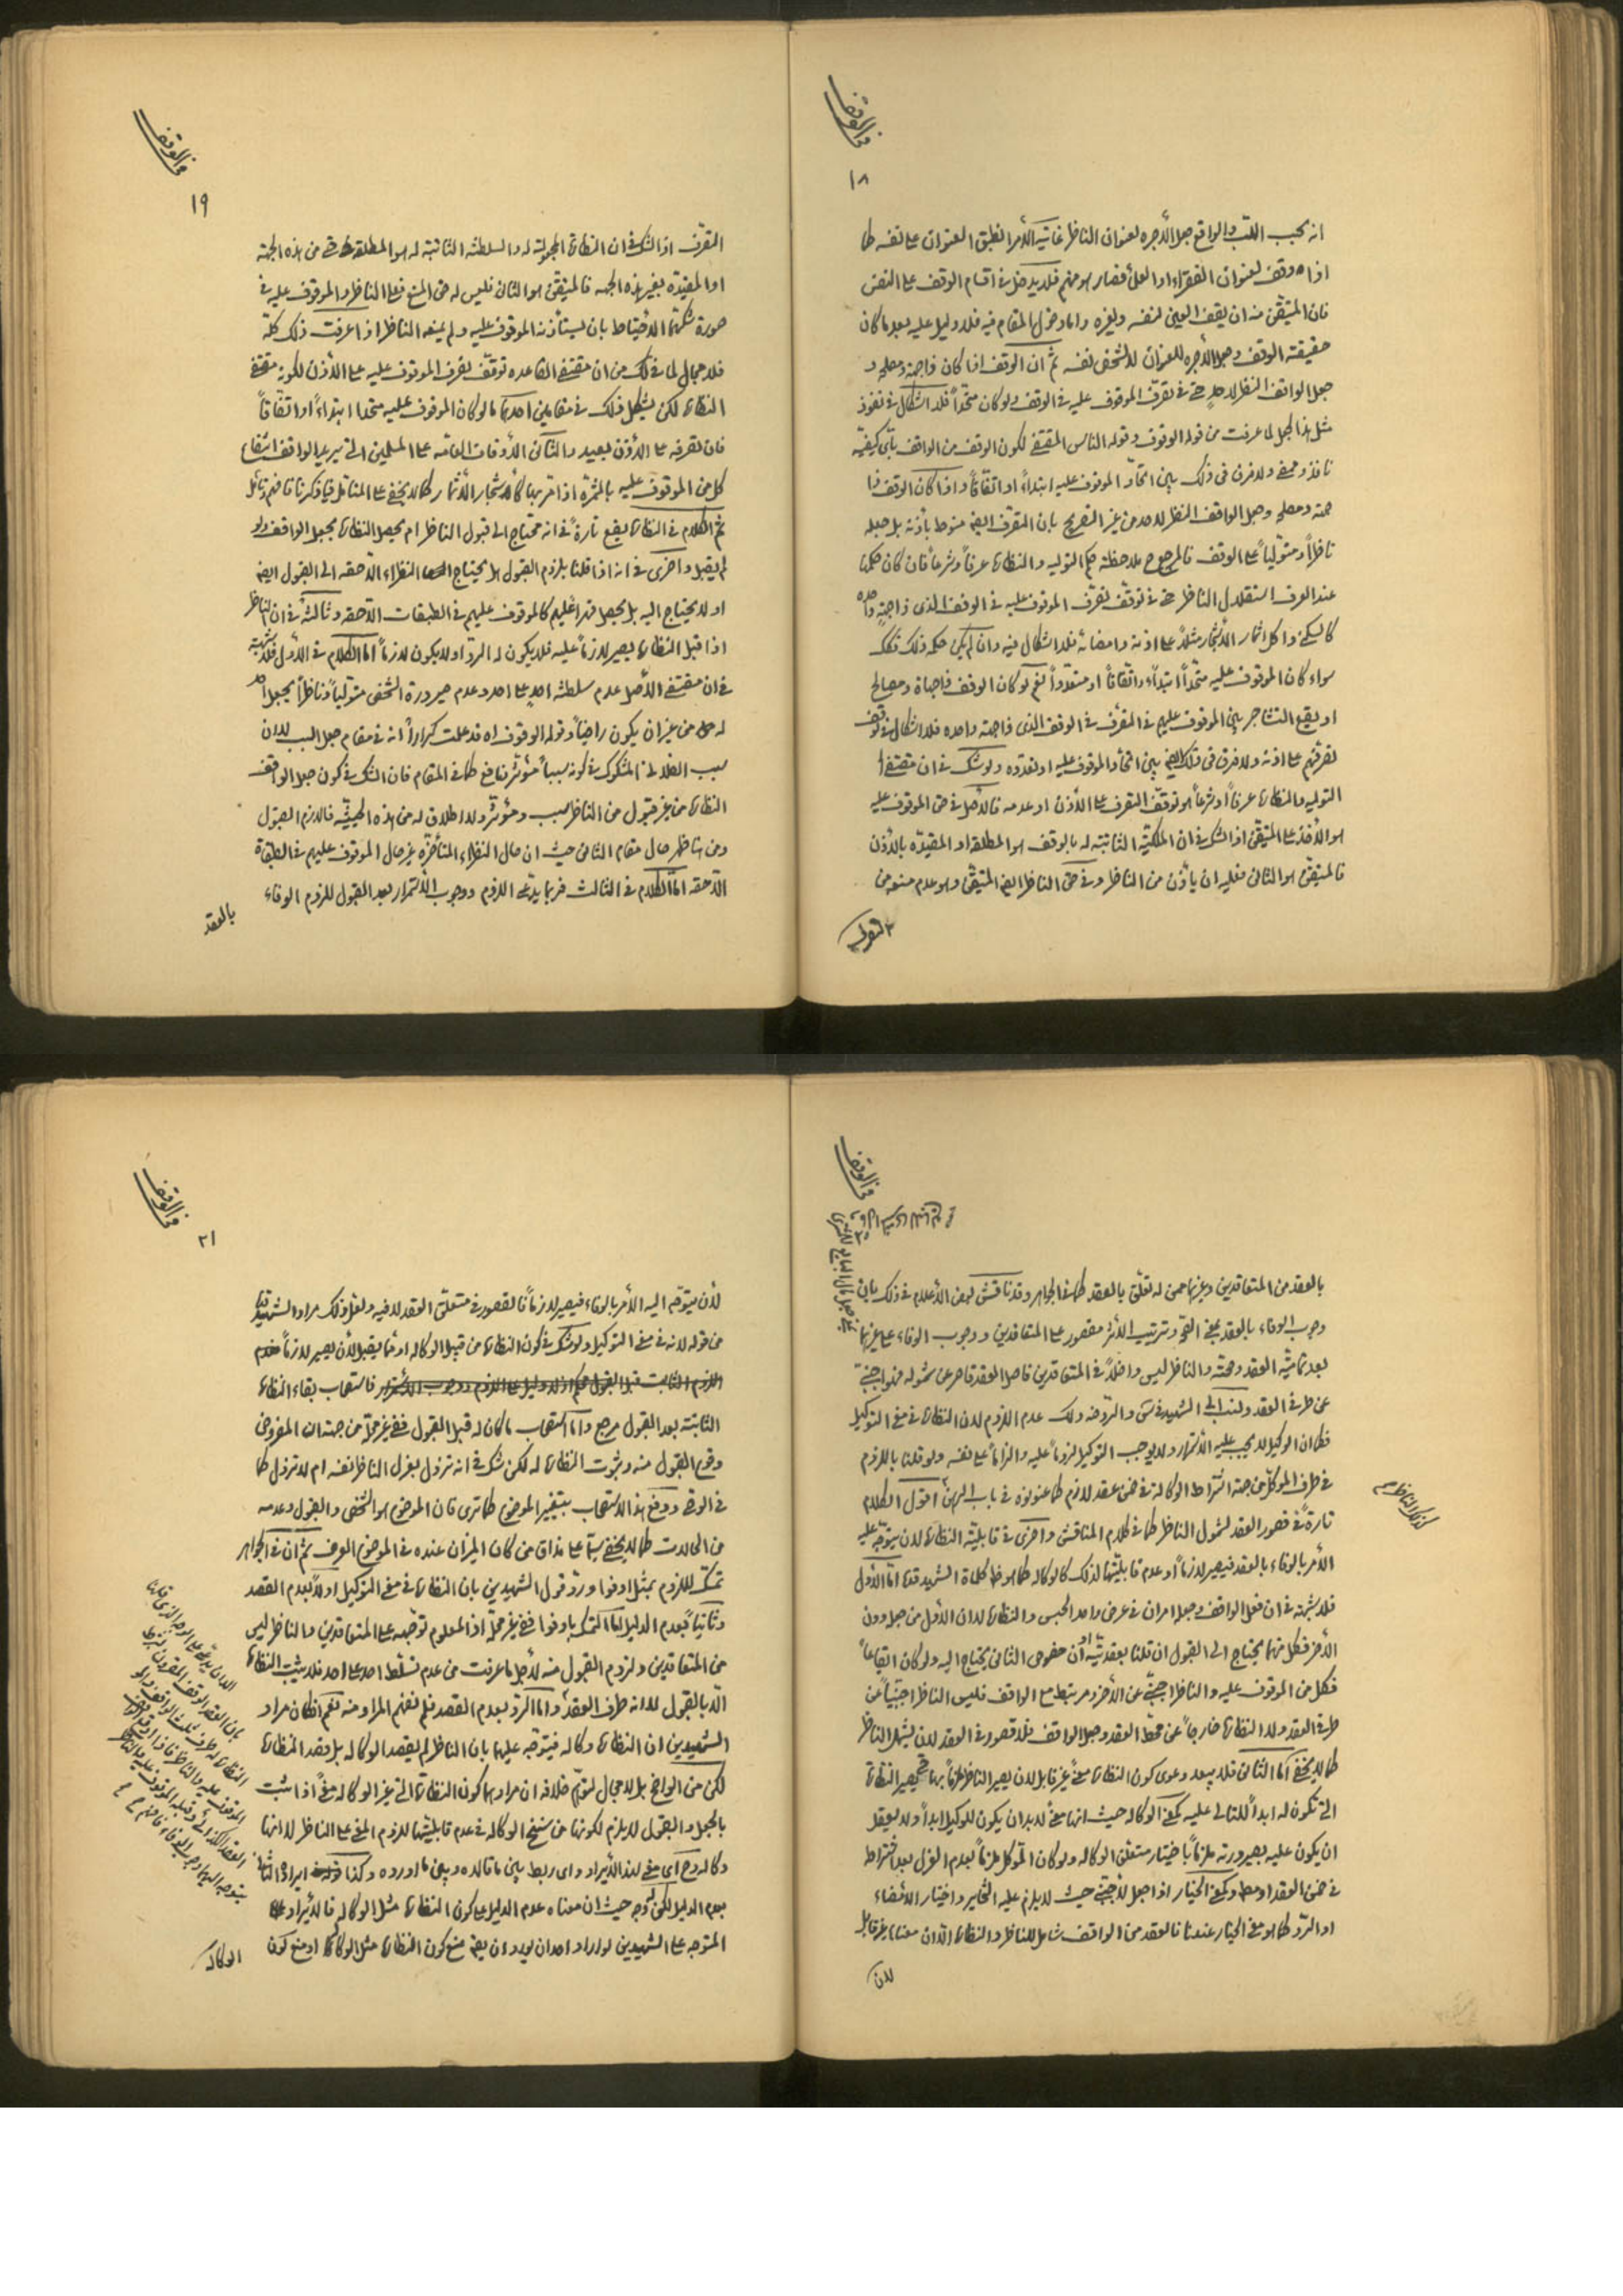 في الوقف
١٨
انه بحسب اللب والواقع جعل الأجره لعنوان الناظر غاية الأمر انطبق العنوان على نفسه كما
اذا وقف لعنوان الفقراء او العلماء فصار هو منهم فلا يدخل في اقسام الوقف على النفس
فان المتيقن منه ان يقف العين لنفسه ولغيره واما دخول المقام فيه فلا دليل عليه بعد ما كان
حقيقته الوقف وجعل الأجره للعنوان لا لشخص نفسه ثم ان الوقف اذا كان ذا جهة ومصلحه و
جعل الواقف النظر لاحد حتى في تصرف الموقوف عليه في الوقف ولو كان متحداً فلا اشكال في نفوذ
مثل هذا الجعل لما عرفت من قوله الوقوف وقوله الناس المقتضى لكون الوقف من الواقف بأي كيفية
نافذ وممضى ولا فرق في ذلك بين اتحاد الموقوف عليه ابتداءً او اتفاقاً واذا كان الوقف ذا
جهة ومصلحه وجعل الواقف النظر لاحد من غير التصريح بان التصرف ايضا منوط بأذنه بل جعله
ناظراً ومتولياً على الوقف فالمرجع ملاحظة حكم التوليه والنظارة عرفاً وشرعاً فان كان حكمها
عند العرف استقلال الناظر حتى في توقف تصرف الموقوف عليه في الوقف الذي ذا جهة واحده
كالسكنى واكل اثمار الأشجار مثلاً على اذنه وامضائه فلا اشكال فيه وان لم يكن حكمه ذلك فكك
سواء كان الموقوف عليه متحداً ابتداءً واتفاقاً او متعدداً نعم لو كان الوقف ذا جهات ومصالح
او يقع التشاجر بين الموقوف عليهم في التصرف في الوقف الذي ذا جهة واحده فلا اشكال في توقف
تصرفهم على اذنه ولا فرق في ذلك ايضا بين اتحاد الموقوف عليه او تعدده ولو شك في ان مقتضى
التوليه والنظارة عرفاً او شرعاً هو توقف التصرف على الأذن او عدمه فالأصل في حق الموقوف عليه
هو الأخذ على المتيقن اذ الشك في ان الملكية الثابتة له بالوقف هو المطلقه او المقيده بالأذن
فالمتيقن هو الثاني فعليه ان يأذن من الناظر وفي حق الناظر ايضا المتيقن وهو عدم منعه من
التصرف
في الوقف
١٩
التصرف اذ الشك في ان النظارة المجعولة له والسلطنه الثابتة له هو المطلقه حتى من هذه الجهة
او المقيده بغير هذه الجهه فالمتيقن هو الثاني فليس له حق المنع فعلى الناظر والموقوف عليه في
صورة شكهما الأحتياط بان يستأذنه الموقوف عليه ولم يمنعه الناظر اذا عرفت ذلك كله
فلا مجال لما في لك من ان مقتضى القاعده توقف تصرف الموقوف عليه على الأذن لكونه مقتضى
النظارة لكن يشكل ذلك في مقامين احدهما ما لو كان الموقوف عليه متحدا ابتداءً او اتفاقاً
فان تصرفه على الأذن بعيد والثاني الأوقات العامة على المسلمين التي يريد الواقف انتفاع
كل من الموقوف عليه بالثمرة اذا مر بها كأشجار الأثمار كما لا يخفى على المتأمل فيما ذكرنا فافهم وتأمل
ثم الكلام في النظارة يقع تارة في انه محتاج الى قبول الناظر ام يحصل النظارة بجعل الواقف ولو
لم يقبل واخرى في انه اذا قلنا بلزوم القبول هل يحتاج النظراء اللاحقه الى القبول ايضا
او لا يحتاج اليه بل يحصل قهراً عليهم كالموقوف عليهم في الطبقات اللاحقه وثالثة في ان الناظر
اذا قبل النظارة يصير لازماً عليه فلا يكون له الرد او لا يكون لازماً اما الكلام في الأول فلا شبهة
في ان مقتضى الأصل عدم سلطنة احد على احد وعدم صيرورة الشخص متولياً وناظراً بجعل احد
له من غير ان يكون راضياً وقوله الوقوف اه قد علمت كراراً انه في مقام جعل السبب لا ان
سبب الفلاني المشكوك في كونه سبباً مؤثر نافع كما في المقام فان الشك في كون جعل الواقف
النظارة من غير قبول من الناظر سبب ومؤثر ولا اطلاق له من هذه الحيثية فاللازم القبول
ومن هنا ظهر حال مقام الثاني حيث ان حال النظراء المتأخرة غير حال الموقوف عليهم في الطبقة
اللاحقه اما الكلام في الثالث فربما يدعى اللزوم ووجوب الأستمرار بعد القبول للزوم الوفاء
بالعقد
في الوقف
بالعقد من المتعاقدين وغيرهما ممن له تعلق بالعقد كما في الجواهر وقد ناقش بعض الأعلام في ذلك بان
وجوب الوفاء بالعقد بمعنى النهي وترتيب الأثر مقصور على المتعاقدين ووجوب الوفاء على غيرهما
بعد تمامية العقد وصحته والناظر ليس داخلاً في المتعاقدين فاصل العقد قاصر عن شموله فهو اجنبي
عن طرفي العقد ونسب الى الشهيد في لك والروضه ولك عدم اللزوم لان النظارة في معنى التوكيل
فكما ان الوكيل لا يجب عليه الأستمرار ولا يوجب التوكيل لزوماً عليه والزاماً على نفسه ولو قلنا باللزوم
في طرف الموكل من جهة اشتراط الوكالة في ضمن عقد لازم كما عنونوه في باب الرهن اقول الكلام
تارةً في قصور العقد لشمول الناظر كما في كلام المناقش واخرى في قابلية النظارة لان يتوجه عليه
الأمر بالوفاء بالعقد فيصير لازماً او عدم قابليتها لذلك كالوكاله كما هو ظاهر كلمات الشهيد اما الأول
فلا شبهة في ان فعل الواقف وجعله امران في عرض واحد الحبس والنظارة لا ان الأول من جعل دون
الأخر فكل منهما يحتاج الى القبول ان قلنا بعقديته او ان خصوص الثاني يحتاج اليه ولو كان ايقاعاً
فكل من الموقوف عليه والناظر اجنبي عن الأخر ومرتبط مع الواقف فليس الناظر اجنبياً عن
طرفي العقد ولا النظارة خارجاً عن محط العقد وجعل الواقف فلا قصور في العقد لان يشمل الناظر
كما لا يخفى اما الثاني فلا يبعد دعوى كون النظارة معنى غير قابل لان يصير الناظر ملزماً بها حتى يصير النظارة
التي تكون له ابداً كالتالي عليه كمعنى الوكاله حيث انها معنى لا بد ان يكون للوكيل ابداً ولا يعقل
ان يكون عليه بصيرورته ملزماً باختيار متعلق الوكاله ولو كان الموكل ملزماً بعدم العزل بعد اشتراطه
في ضمن العقد اومطلقا وكمعنى الخيار اذا جعل لأجنبي حيث لا يلزم عليه التخاير واختيار الأمضاء
او الرد كما هو معنى الخيار عندنا فالعقد من الواقف شامل للناظر والنظارة الا ان معناه غير قابل
لان
في الوقف
٢١
لأن يتوجه اليه الأمر بالوفاء فيصير لازماً فالقصور في متعلق العقد لا فيه ولعل ذلك مراد الشهيد
من قوله لانه في معنى التوكيل ولو شك في كون النظارة من قبيل الوكاله او مما يقبل لأن يصير لازماً فعدم
اللزوم الثابت قبل القبول محكم اذ لا دليل على اللزوم ووجوب الأستمرار فاستصحاب بقاء النظارة
الثابتة بعد القبول مرجع واما استصحاب ما كان له قبل القبول ففي غير محله من جهة ان المفروض
وقوع القبول منه وثبوت النظارة له لكن شك في انه تزول بعزل الناظر نفسه ام لا تزول كما
في الوصي ودفع هذا الأستصحاب بتغيير الموضوع كما ترى فان الموضوع هو الشخص والقبول وعدمه
من الحالات كما لا يخفى سيما على مذاق من كان الميزان عنده في الموضوع العرف ثم ان في الجواهر
تمسك للزوم بمثل اوفوا ورد قول الشهيدين بان النظارة في معنى التوكيل اولاً بعدم القصد
وثانياً بعدم الدليل اما التمسك باوفوا ففي غير محله اذ المعلوم توجهه على المتعاقدين والناظر ليس
من المتعاقدين ولزوم القبول منه لأجل ما عرفت من عدم تسلط احد على احد فلا يثبت النظارة
الا بالقبول لا انه طرف العقد واما الرد بعدم القصد فلم نفهم المراد منه نعم ان كان مراد
الشهيدين ان النظارة وكاله فيتوجه عليهما بان الناظر لم يقصد الوكاله بل قصد النظارة
لكن من الواضح بل لا مجال لتوهم خلافه ان مرادهما كون النظارة التي غير الوكاله معنى اذا ثبت
بالجعل والقبول لا يلزم لكونها من سنخ الوكاله في عدم قابليتها للزوم المعنى على الناظر لا انها
وكاله وح اي معنى لهذا الأيراد واي ربط بين ما قالاه وبين ما اورده وكذا ايراده الثاني
بعدم الدليل لكن له وجه حيث ان معناه عدم الدليل على كون النظارة مثل الوكاله فالأيراد
المتوجه على الشهيدين لو اراد احد ان يورد ان يمنع كون النظارة مثل الوكاله او منع كون
الوكاله